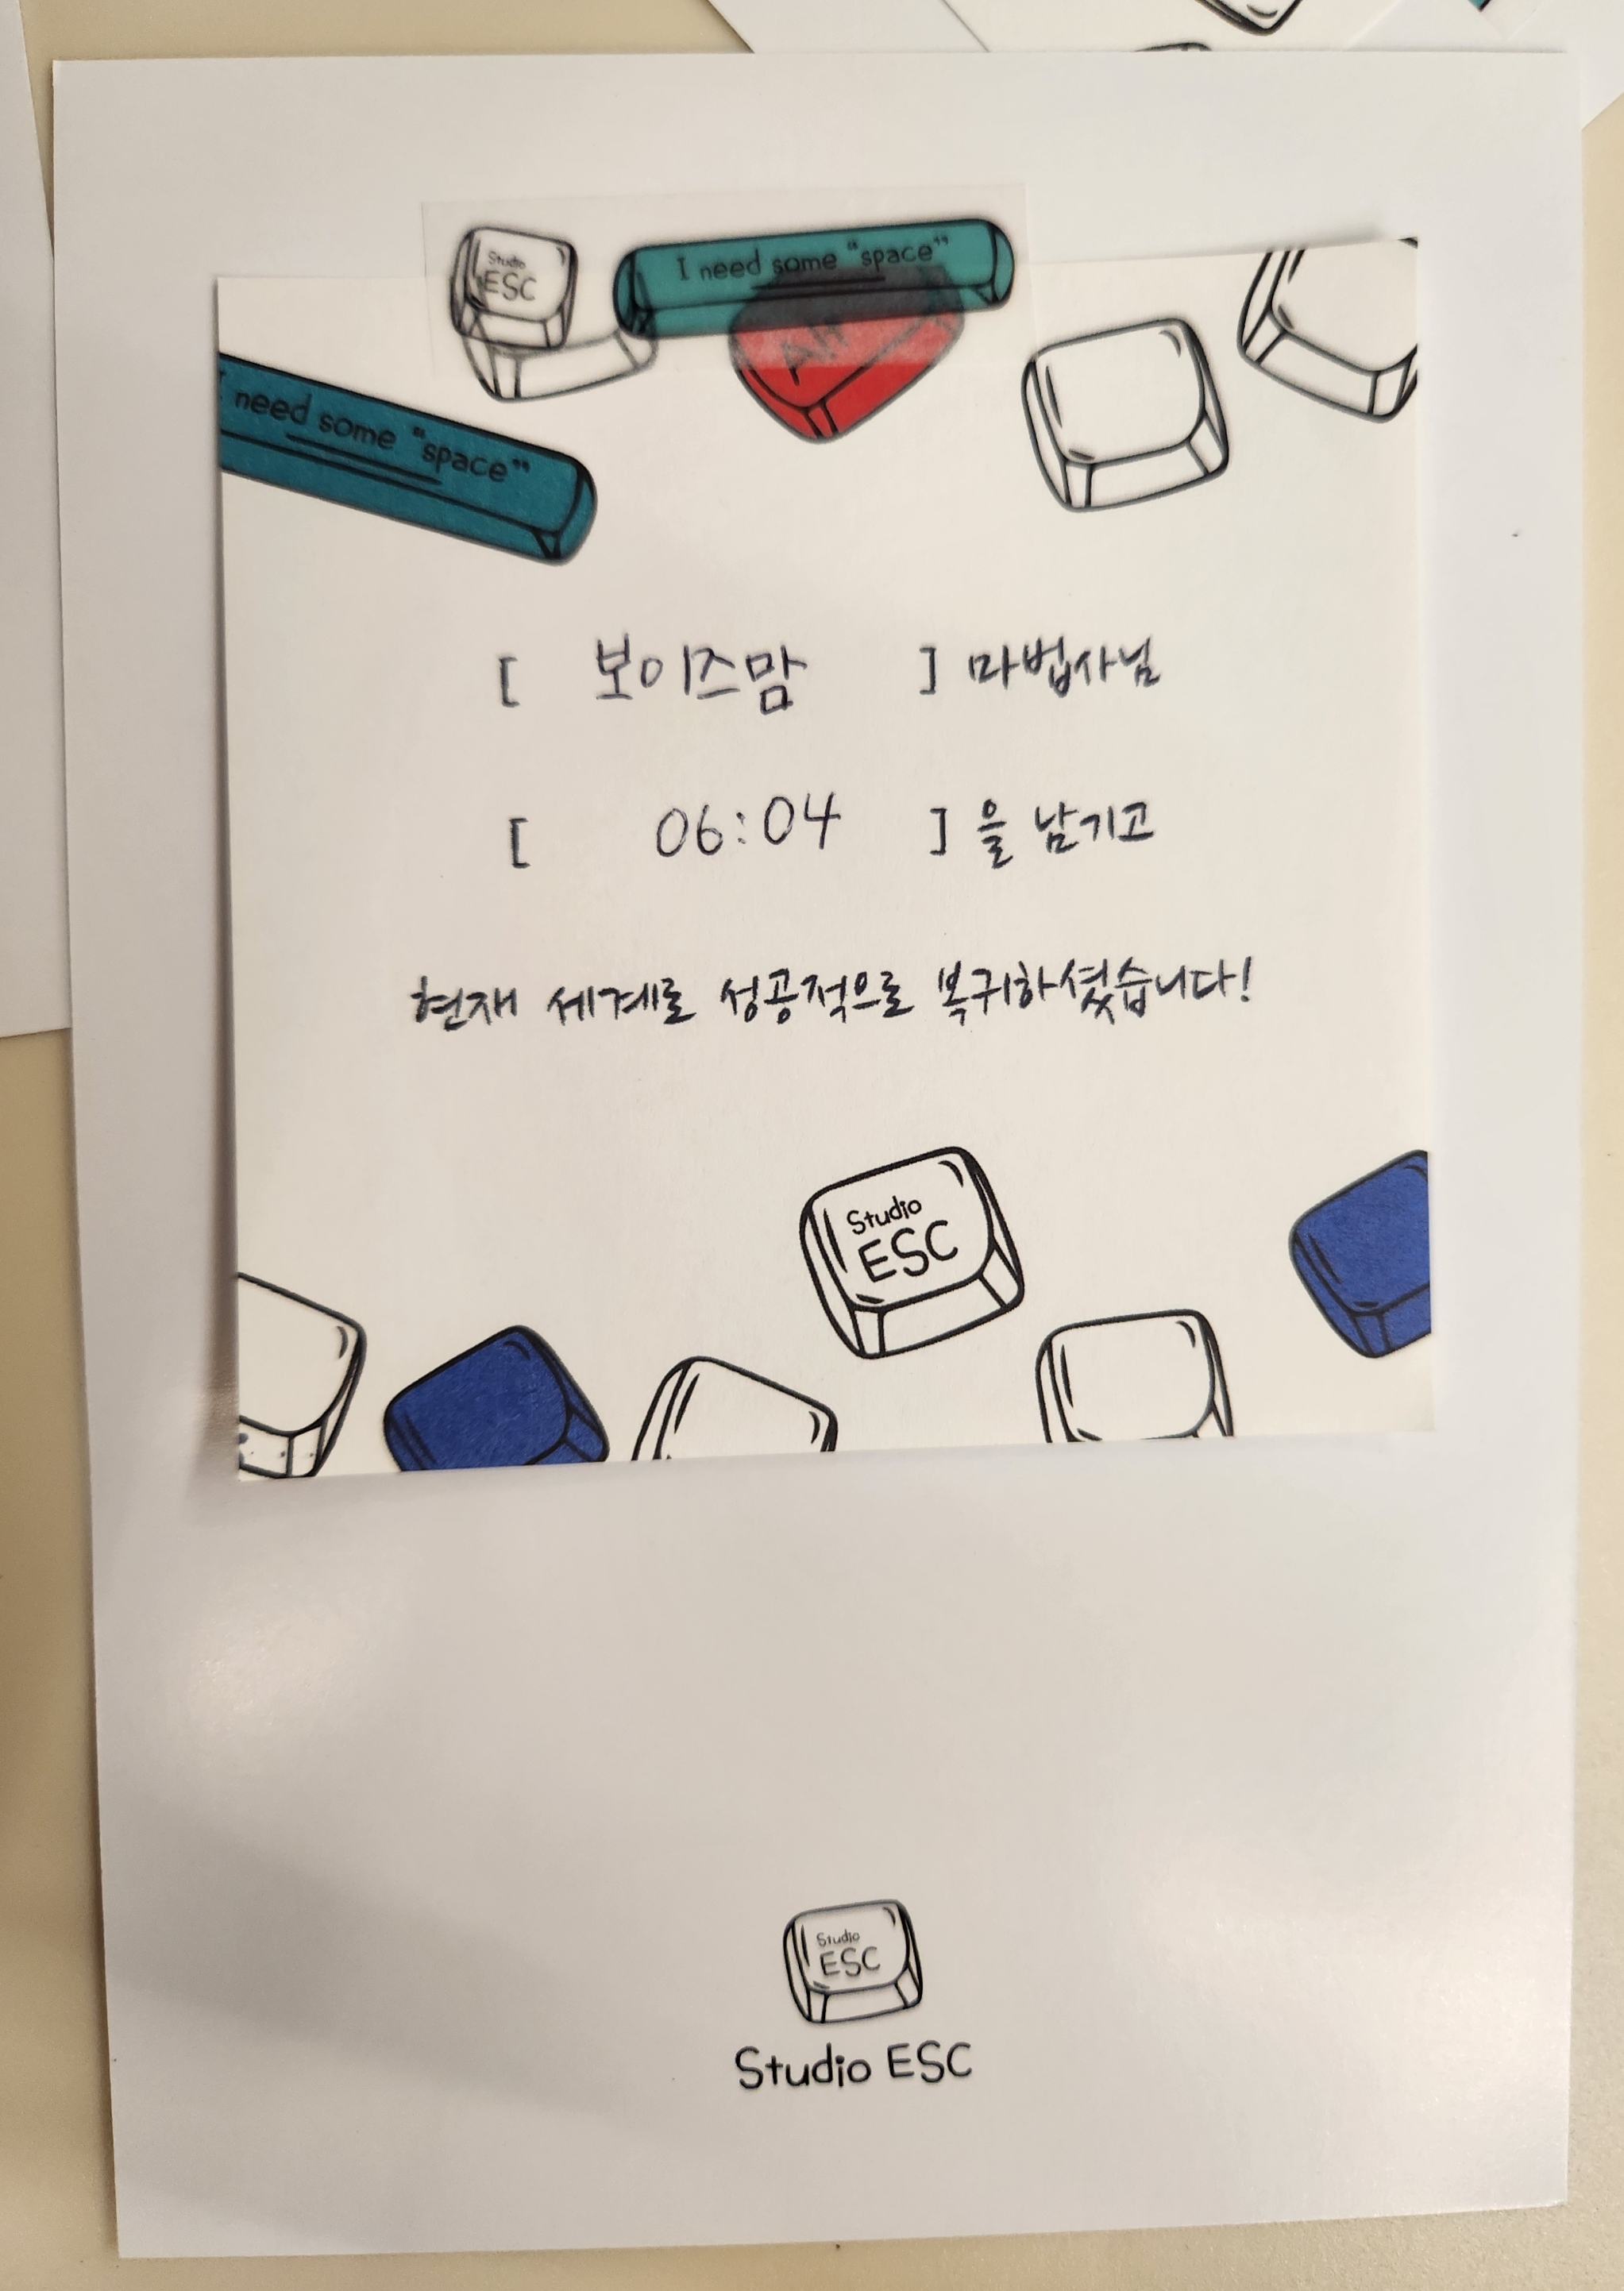 Studio
ESC
I need some "space"
AH
need some "space"
[ 보이즈맘 ] 마법사님
[ 06:04 ] 을 남기고
현재 세계로 성공적으로 복귀하셨습니다!
Studio
ESC
Studio
ESC
Studio ESC